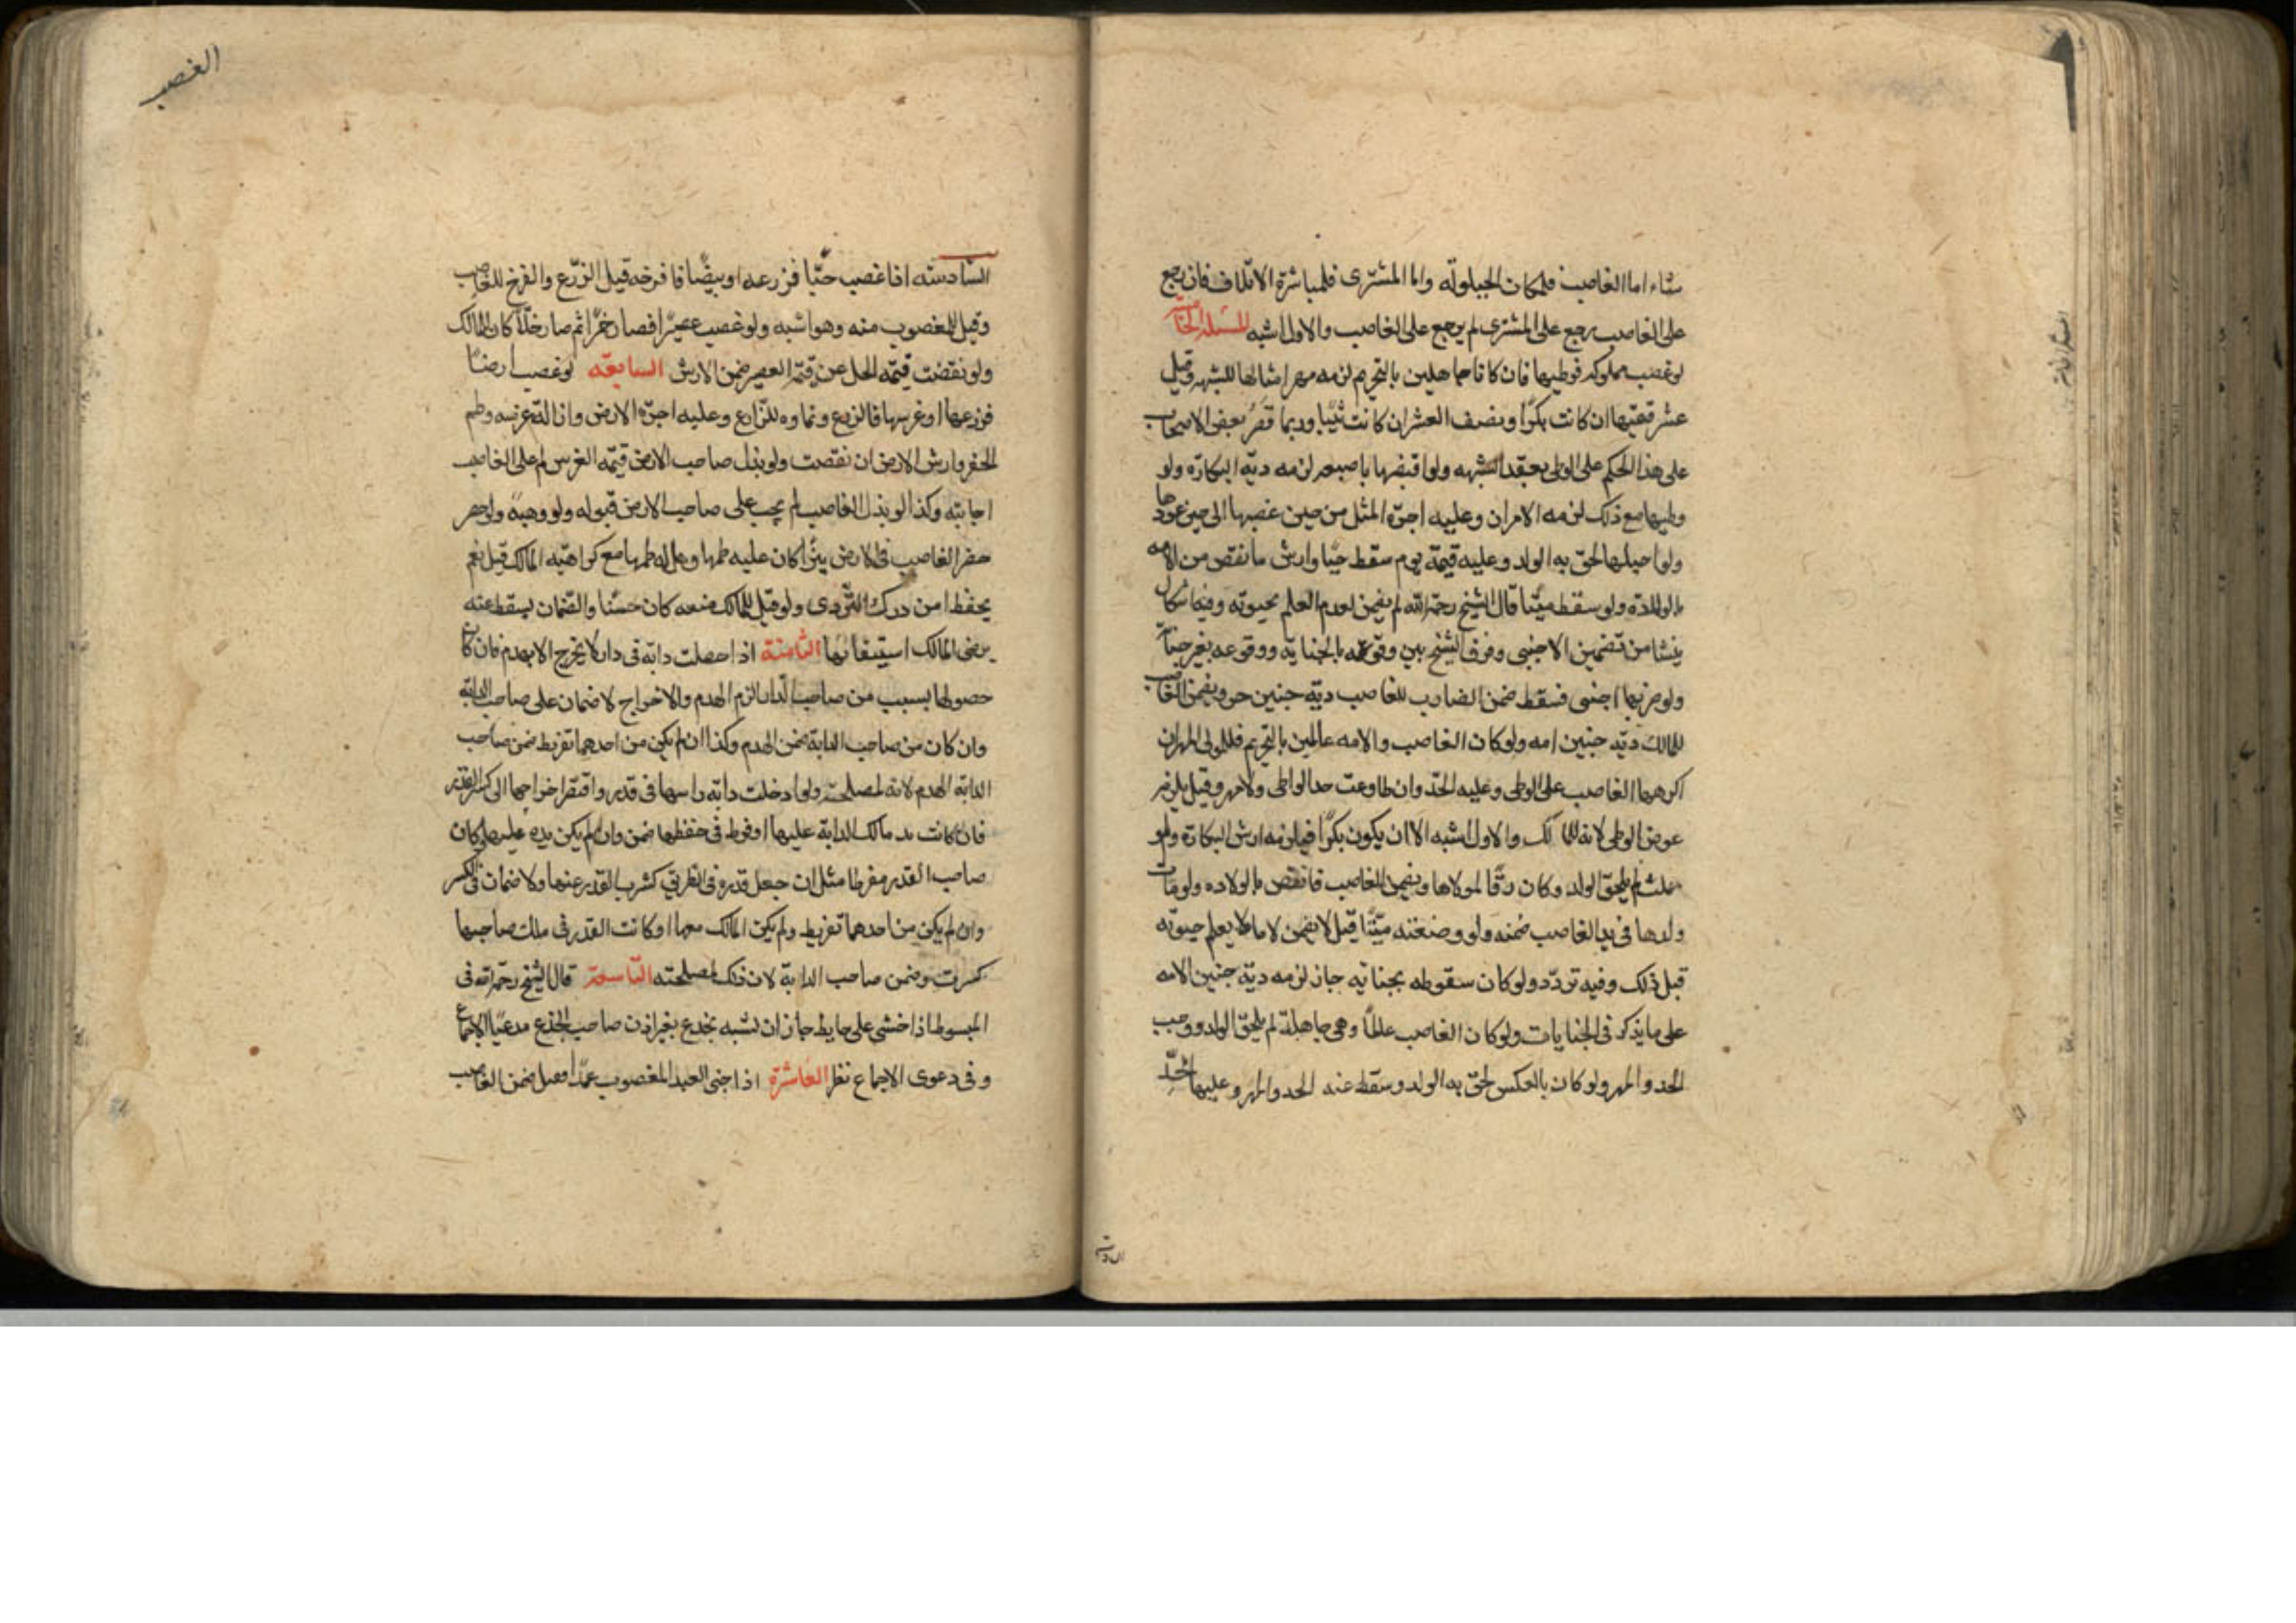 شاء اما الغاصب فلمكان الحيلولة واما المشتري فلمباشرة الاتلاف فان رجع
على الغاصب رجع على المشتري لم يرجع على الغاصب والاول اشبه المسئلة الخامسة
لو غصب مملوكة فوطيها فان كانا جاهلين بالتحريم لزمه مهر امثالها للشبهه وقيل
عشر قيمتها ان كانت بكرًا ونصف العشر ان كانت ثيبا وربما قصر بعض الاصحاب
على هذا الحكم على الوطى بعقد الشبهه ولو اقتضها باصبعه لزمه دية البكارة ولو
وطيها مع ذلك لزمه الامران وعليه اجرة المثل من حين غصبها الى حين عودها
ولو احبلها لحق به الولد وعليه قيمة يوم سقط حيا وارش ما نقص من الامه
بالولادة ولو سقط ميتا قال الشيخ رحمه الله لم يضمن لعدم العلم بحيوته وفيه اشكال
ينشا من تضمين الاجنبى وفرق الشيخ بين وقوعه بالجناية ووقوعه بغير جناية
ولو ضربها اجنبى فسقط ضمن الضارب للغاصب دية جنين حر ويضمن الغاصب
للمالك دية جنين امه ولو كان الغاصب والامه عالمين بالتحريم فللمولى المهر ان
اكرهها الغاصب على الوطى وعليه الحد وان طاوعت حد الواطى ولا مهر وقيل يلزمه
عوض الوطى لانه للمالك والاول اشبه الا ان يكون بكرًا فيلزمه ارش البكارة ولو
حملت لم يلحق الولد وكان رقًا لمولاها ويضمن الغاصب ما نقص بالولاده ولو مات
ولدها فى يد الغاصب ضمنه ولو وضعته ميتًا قيل لا يضمن لانا لا نعلم حيوته
قبل ذلك وفيه تردد ولو كان سقوطه بجناية جان لزمه دية جنين الامه
على ما يذكر فى الجنايات ولو كان الغاصب عالمًا وهى جاهلة لم يلحق الولد ووجب
الحد والمهر ولو كان بالعكس لحق به الولد وسقط عنه الحد والمهر وعليها الحد
الغصب
السادسة اذا غصب حبًّا فزرعه او بيضًا فافرخه قيل الزرع والفرخ للغاصب
وقيل للمغصوب منه وهو اشبه ولو غصب عصيرًا فصار خمرًا ثم صار خلًا كان للمالك
ولو نقصت قيمة الخل عن قيمة العصير ضمن الارش السابعة لو غصب ارضا
فزرعها او غرسها فالزرع ونماوه للزارع وعليه اجرة الارض وازالة غرسه وطم
الحفر وارش الارض ان نقصت ولو بذل صاحب الارض قيمة الغرس لم على الغاصب
اجابته وكذا لو بذل الغاصب لم يجب على صاحب الارض قبوله ولو وهبه ولو حفر
حفر الغاصب فى الارض بئرًا كان عليه طمها وهل له طمها مع كراهية المالك قيل نعم
يحفظا من درك التردى ولو قيل للمالك منعه كان حسنًا والضمان يسقط عنه
برضى المالك استبقائها الثامنة اذا حصلت دابة فى دار لا يخرج الا بهدم فان كان
حصولها بسبب من صاحب الدار الزم الهدم والاخراج لا ضمان على صاحب الدابة
وان كان من صاحب الدابة ضمن الهدم وكذا ان لم يكن من احدهما تفريط ضمن صاحب
الدابة الهدم لانه لمصلحته ولو ادخلت دابة راسها فى قدر وافتقر اخراجها الى كسر القدر
فان كانت يد مالك الدابة عليها او فرط فى حفظها ضمن وان لم يكن يده عليها وكان
صاحب القدر مفرطا مثل ان جعل قدره فى الطريق كسرت القدر عنها ولا ضمان فى الكسر
وان لم يكن من احدهما تفريط ولم يكن المالك معها او كانت القدر فى ملك صاحبها
كسرت وضمن صاحب الدابة لان ذلك لمصلحته التاسعة قال الشيخ رحمه الله فى
المبسوط اذا خشى على حايط جاز ان يسنده بجذع بغير اذن صاحب الجذع مدعيًا الاجماع
وفى دعوى الاجماع نظر العاشرة اذا جنى العبد المغصوب عمدًا فقتل ضمن الغاصب